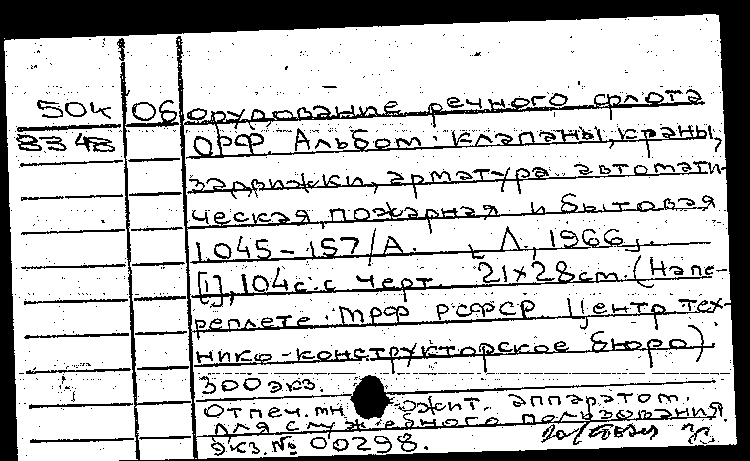 50к Оборудование речного флота
3348 ОРФ. Альбом: клапаны, краны,
задвижки, арматура автомати-
ческая, пожарная и бытовая
1.045-157/А. [Л., 1966].
[1], 104 с. с черт. 21х28 cm. (На пе-
реплете: МРФ РСФСР Центр тех-
нико-конструкторское бюро)
300 экз.
Отпеч. мн ожит. аппаратом.
Для служебного пользования.
Экз. № 00298.